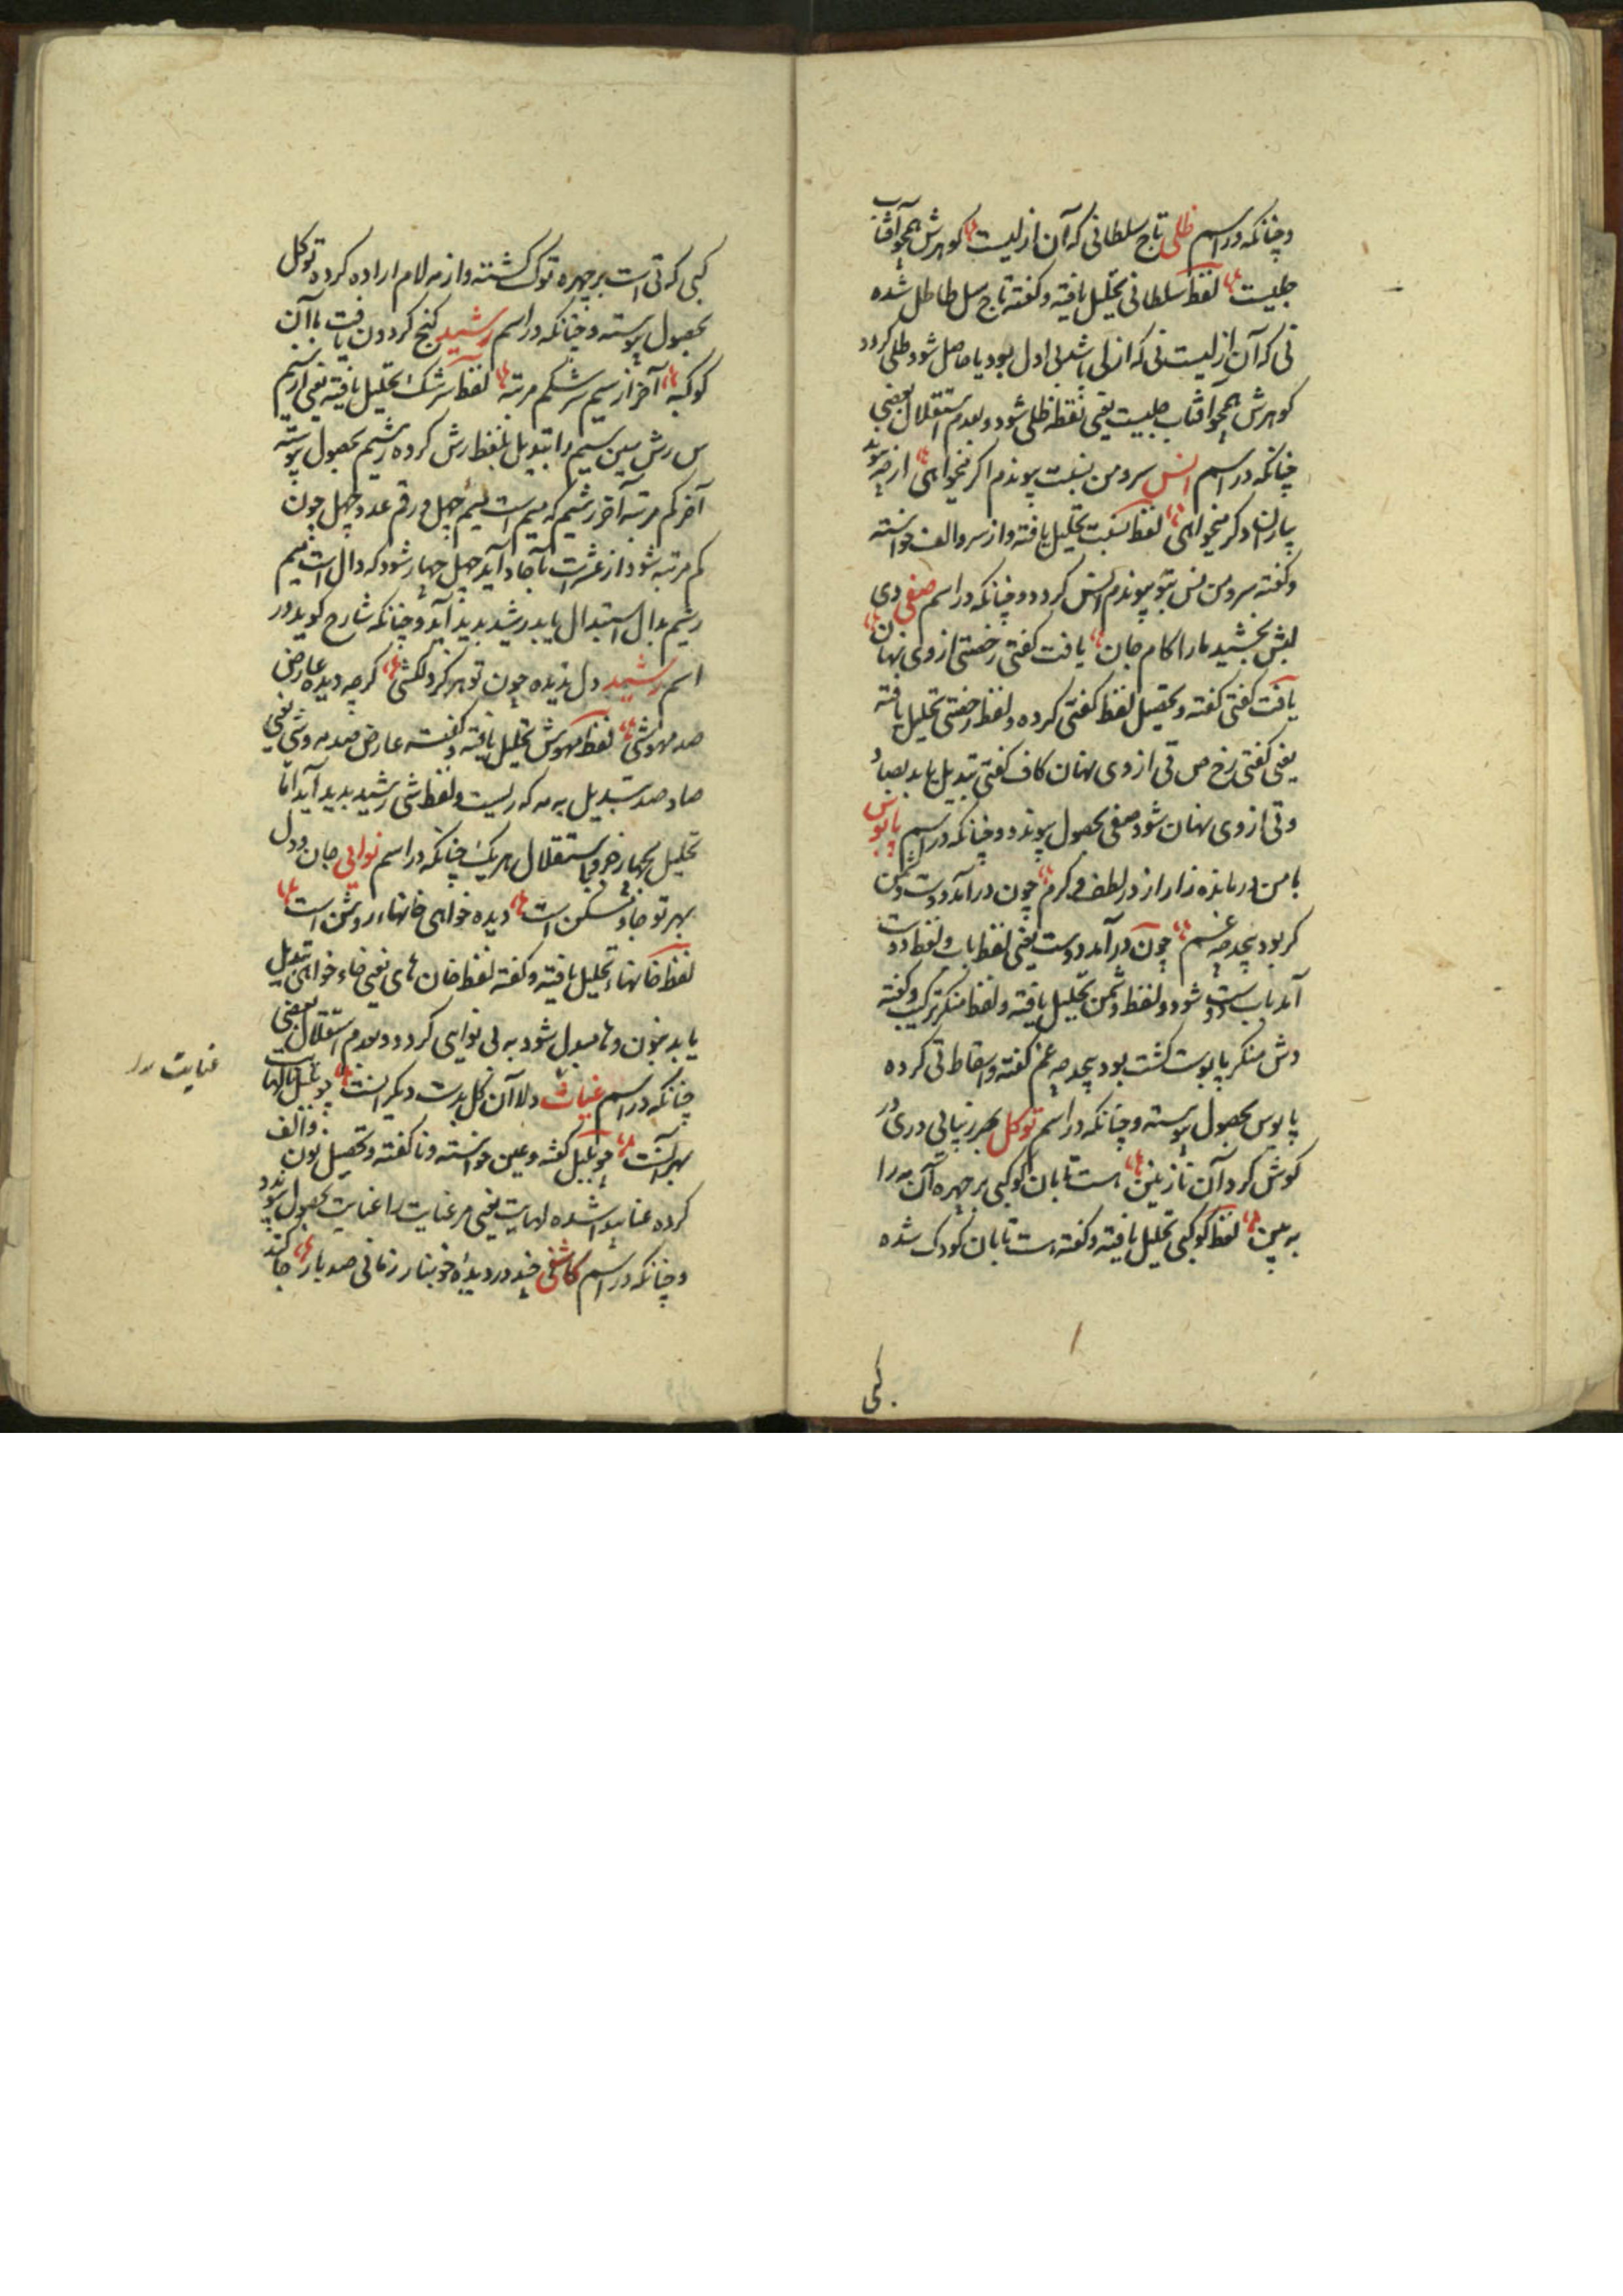 وچنانکه در اسم ظلی تاج سلطانی که آن ازلیست کوهرش همچو آفتاب
جلیست لفظ سلطانی تحلیل یافته و کفته تاج سل طا طل شده
نی که آن ازلیست نی که ازلی باشد بی اول بود یا حاصل شود طلی کردد
کوهرش همچو آفتاب جلیست یعنی نقطه ظلی شود و بعدم استقلال بعضی
چنانکه در اسم انس سرو من بنسبت پیوندم اکر میخواهی از چه پیوند
بیاران دکر میخواهی لفظ بنسبت تحلیل یافته و از سرو الف خواسته
و کفته سرو من نس بتو پیوندم انس کردد و چنانکه در اسم صفی دی
لبش بخشید ما را کام جان یافت کفتی رخصتی از وی نهان
یافت کفتی کفته و تحصیل لفظ کفتی کرده و لفظ رخصتی تحلیل یافته
یعنی کفتی رخ ص تی از وی نهان کاف کفتی تبدیل یابد بصاد
و تی از وی نهان شود صفی بحصول پیوندد و چنانکه در اسم پابوس
با من درمانده زار از در لطف و کرم چون درآمد دوست دشمن
کر بود بیحد چه غم چون درآمد دوست یعنی لفظ باب و لفظ دوست
آمد باب دوست شود و لفظ دشمن تحلیل یافته و لفظ منکر ترکیب و کفته
دش منکر پابوست کشت بود بیحد چه غم کفته و اسقاط تی کرده
پابوس بحصول پیوسته و چنانکه در اسم توکل بهر زیبائی دری در
کوش کرد آن نازنین هست تابان کوکبی بر چهره آن مه را
به بین لفظ کوکبی تحلیل یافته و کفته هست تابان کودک شده
کبی
کبی که تی است بر چهره توک کشته و از مه لام اراده کرده توکل
بحصول پیوسته و چنانکه در اسم رشید کنج کردون یافت با آن
کوکبه آخر از سیم سرشکم مرتبه لفظ سرشک تحلیل یافته یعنی از سیم
س رش سین سیم را تبدیل بلفظ رش کرده رشیم بحصول پیوسته
آخر کم مرتبه آخر رشیم که میم است میم چهل و رقم عدد چهل چون
کم مرتبه شود از عشرات بآحاد آید چهل چهار شود که دال است میم
رشیم بدال استبدال یابد رشید پدید آید و چنانکه شارح کوید در
اسم رشید دل ندیده چون تو هرکز دلکشی کرچه دیده عارض
صد مهوشی لفظ مهوش تحلیل یافته و کفته عارض صد مه وشی یعنی
صاد صد تبدیل به مه که ریست و لفظ شی رشید پدید آید اما
تحلیل بچهار جزو باستقلال هر یک چنانکه در اسم نوایی جان و دل
بهر تو جا و مسکن است دیده خواهی خانهاء روشن است
لفظ خانهاء تحلیل یافته و کفته لفظ خان های یعنی خاء خواهی تبدیل
یابد بنون و ها مبدل شود به بی نوایی کردد و بعدم استقلال بعضی
چنانکه در اسم غیاث دلا آن کل بدست دیکرانست چو بلبل نالها
بهر آنست چو بلبل کفته و عین خواسته و نا کفته و تحصیل نون و الف
کرده عنا پیدا شده لهایت یعنی مر غنایت را غنایت بحصول پیوندد
وچنانکه در اسم کاشفی خند در دیده خونبار زمانی صد بار جا کند
عنایت